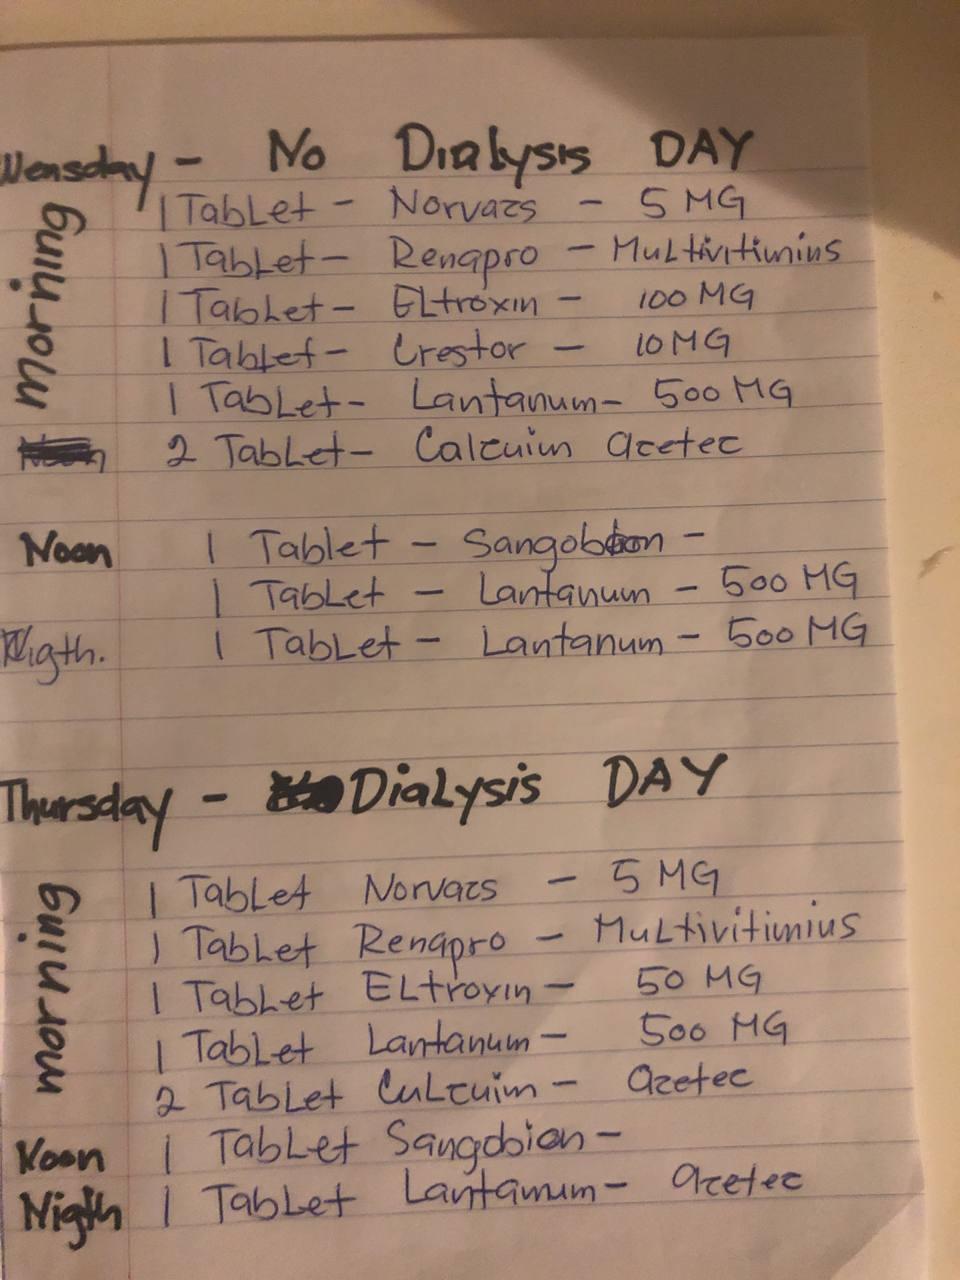 Wensday - No Dialysis DAY
morning
1 Tablet - Norvazs - 5 MG
1 Tablet - Renapro - Multivitimins
1 Tablet - Eltroxin - 100 MG
1 Tablet - Crestor - 10 MG
1 Tablet - Lantanum - 500 MG
2 Tablet - Calcuim azetec
Noon 1 Tablet - Sangobion -
1 Tablet - Lantanum - 500 MG
Nigth. 1 Tablet - Lantanum - 500 MG
Thursday - Dialysis DAY
morning
1 Tablet Norvazs - 5 MG
1 Tablet Renapro - Multivitimius
1 Tablet Eltroxin - 50 MG
1 Tablet Lantanum - 500 MG
2 Tablet Culcuim - azetec
Noon 1 Tablet Sangobion -
Nigth 1 Tablet Lantanum - azetec